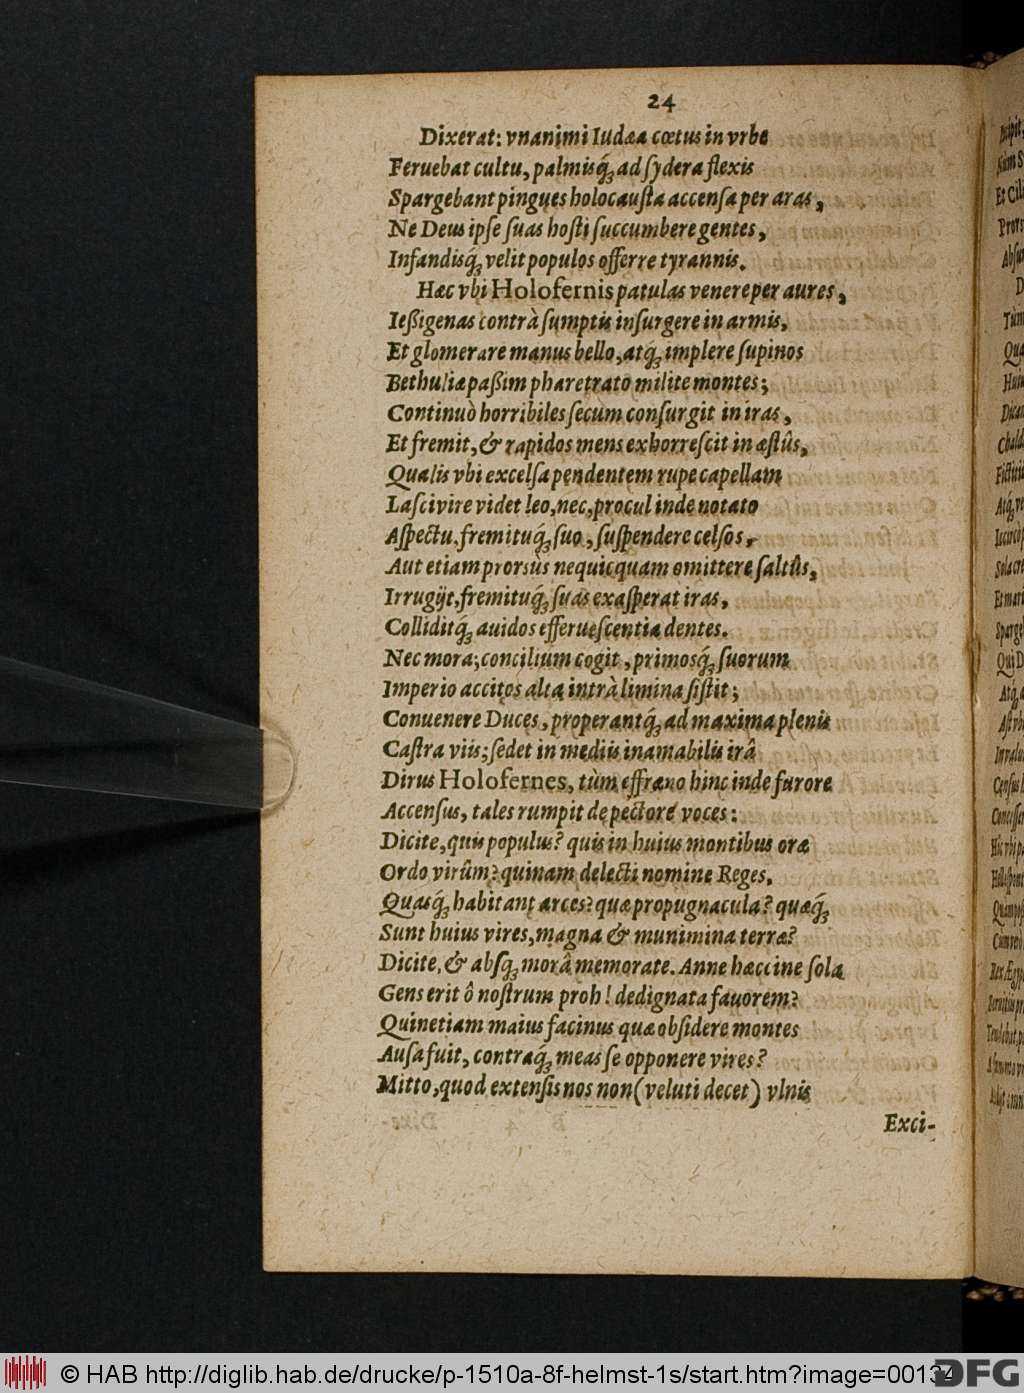 24
Dixerat: vnanimi Iudæa cœtus in vrbe
Feruebat cultu, palmisq́; ad ſydera flexis
Spargebant pingues holocauſta accenſa per aras,
Ne Deus ipſe ſuas hoſti ſuccumbere gentes,
Infandisq́; velit populos offerre tyrannis.
Hæc vbi Holofernis patulas venere per aures,
Ießigenas contrà ſumptis inſurgere in armis,
Et glomerare manus bello, atq́; implere ſupinos
Bethuliæ paßim pharetrato milite montes;
Continuò horribiles ſecum conſurgit in iras,
Et fremit, & rapidos mens exhorreſcit in æſtûs,
Qualis vbi excelſa pendentem rupe capellam
Laſcivire videt leo, nec, procul inde notato
Aſpectu, fremituq́; ſuo, ſuſpendere celſos,
Aut etiam prorsùs nequicquam omittere ſaltûs,
Irrugijt, fremituq́; ſuas exaſperat iras,
Colliditq́; auidos efferueſcentia dentes.
Nec mora; concilium cogit, primosq́; ſuorum
Imperio accitos alta intrà limina ſiſtit;
Conuenere Duces, properantq́; ad maxima plenis
Caſtra viis; ſedet in mediis inamabilis irâ
Dirus Holofernes, tùm effræno hinc inde furore
Accenſus, tales rumpit de pectore voces:
Dicite, quis populus? quis in huius montibus oræ
Ordo virûm? quinam delecti nomine Reges,
Quasq́; habitant arces? quæ propugnacula? quæq́;
Sunt huius vires, magna & munimina terræ?
Dicite, & abſq; morâ memorate. Anne hæccine ſola
Gens erit ô noſtrum proh! dedignata fauorem?
Quinetiam maius facinus quæ obſidere montes
Auſa fuit, contraq́; meas ſe opponere vires?
Mitto, quod extenſis nos non (veluti decet) vlnis
Exci-
© HAB http://diglib.hab.de/drucke/p-1510a-8f-helmst-1s/start.htm?image=00134
DFG